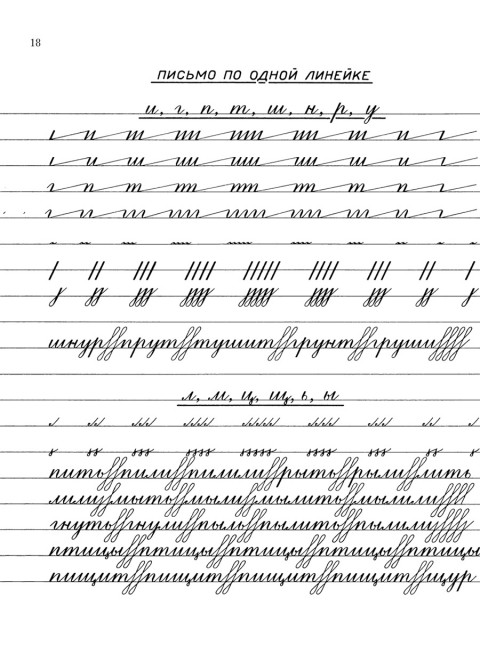 18
ПИСЬМО ПО ОДНОЙ ЛИНЕЙКЕ
и, г, п, т, ш, н, р, у
шнур прут тушит грунт груши
л, м, ц, щ, ь, ы
пить пили пилили рыть рыли лить
лили мыть мыли мылить мылили
гнуть гнули пыл пылить пылили
птицы птицы птицы птицы птицы
пищит пищит пищит пищит щур